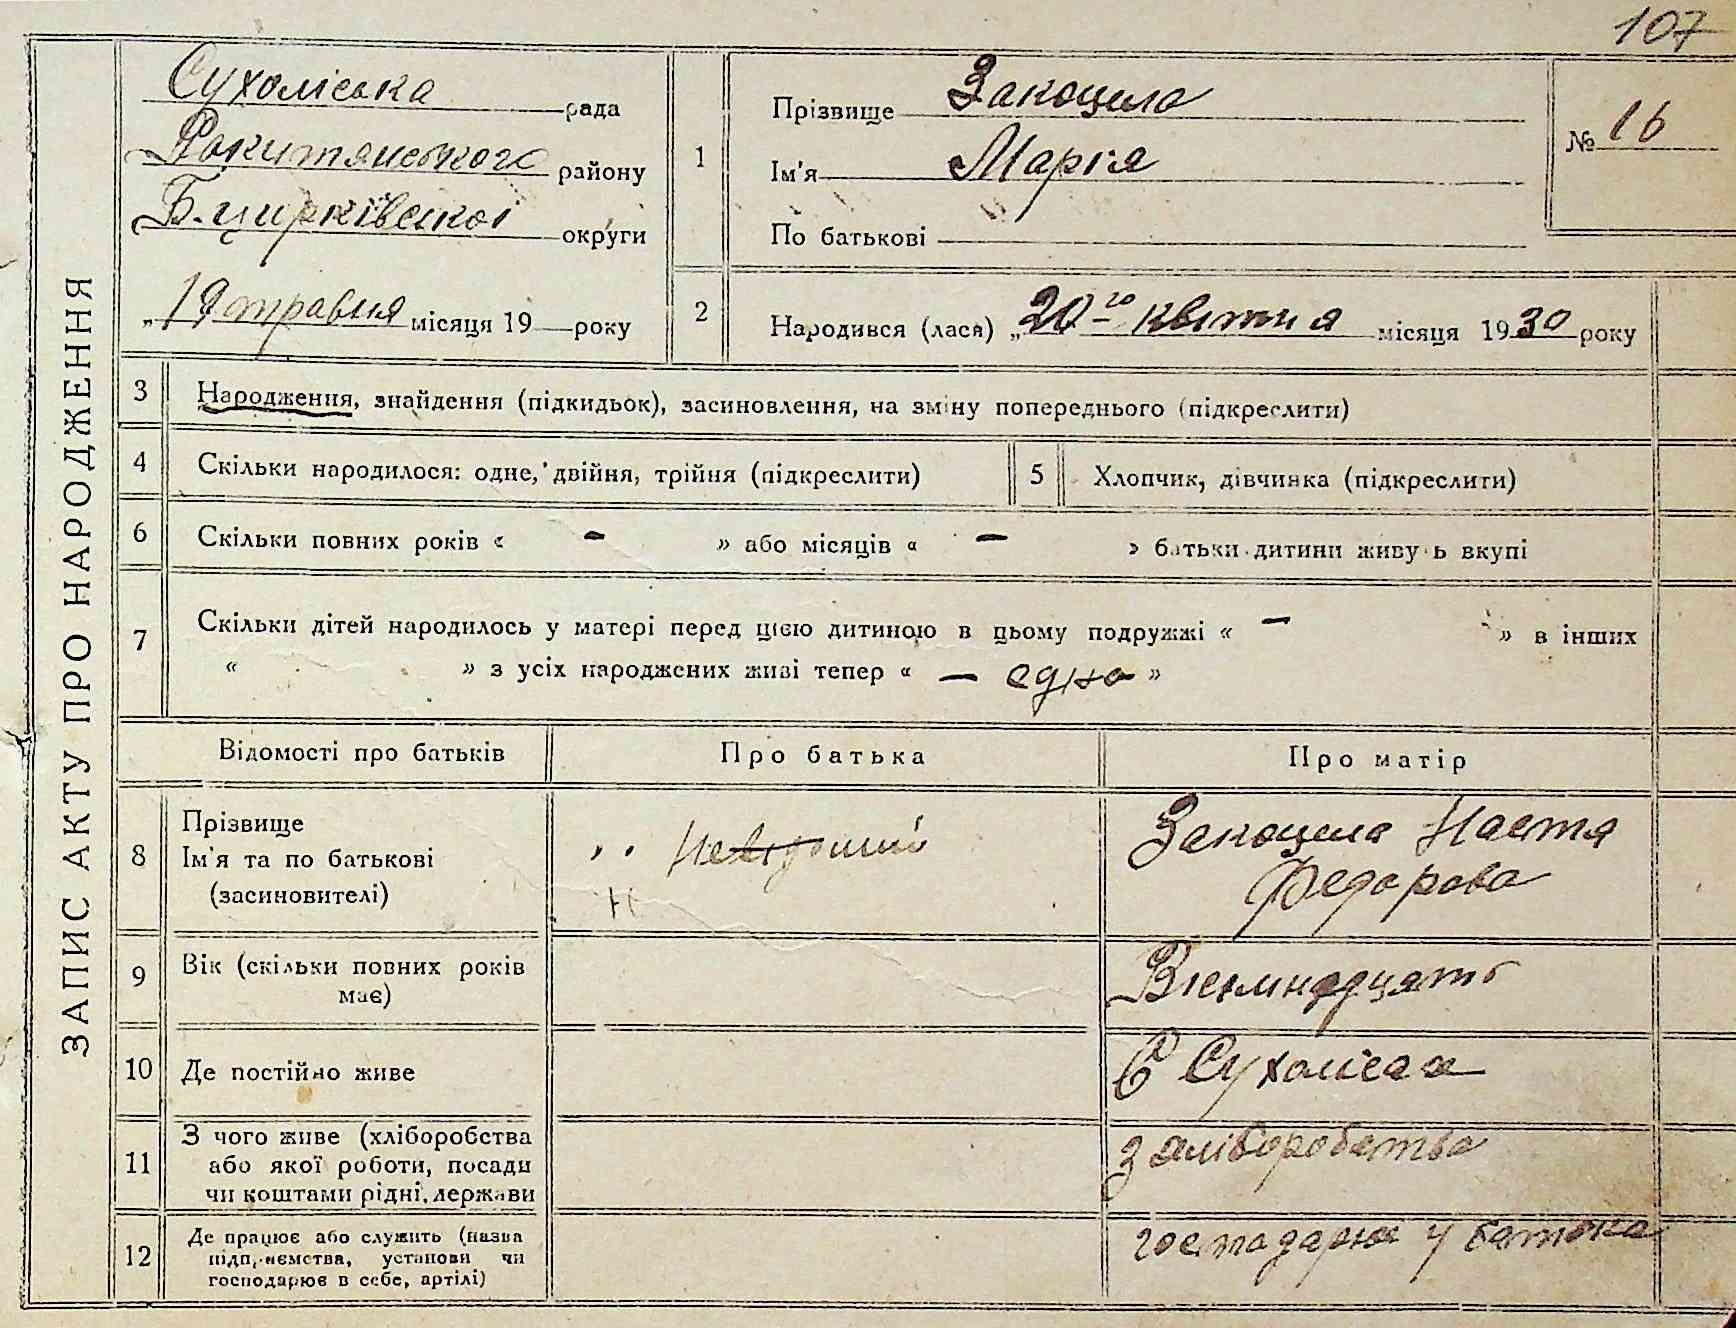 107
ЗАПИС АКТУ ПРО НАРОДЖЕННЯ
Сухоліська рада
Рокитянського району
Б.церківської округи
„19 травня місяця 19 — року
1
Прізвище Закоцила
Ім'я Марія
По батькові
№ 16
2
Народився (лася) „20го квітня місяця 1930 року
3 Народження, знайдення (підкидьок), засиновлення, на зміну попереднього (підкреслити)
4 Скільки народилося: одне, двійня, трійня (підкреслити)
5 Хлопчик, дівчинка (підкреслити)
6 Скільки повних років « – » або місяців « – » батьки дитини живуть вкупі
7 Скільки дітей народилось у матері перед цією дитиною в цьому подружжі « – » в інших
« » з усіх народжених живі тепер « – одно »
Відомості про батьків
Про батька
Про матір
8
Прізвище
Ім'я та по батькові
(засиновителі)
Невідомий
Закоцила Настя
Федорова
9
Вік (скільки повних років
має)
Вісімнадцять
10 Де постійно живе
С Сухоліса
11
З чого живе (хліборобства
або якої роботи, посади
чи коштами рідні, держави
З хліборобства
12
Де працює або служить (назва
підприємства, установи чи
господарює в себе, артілі)
господарює у батька